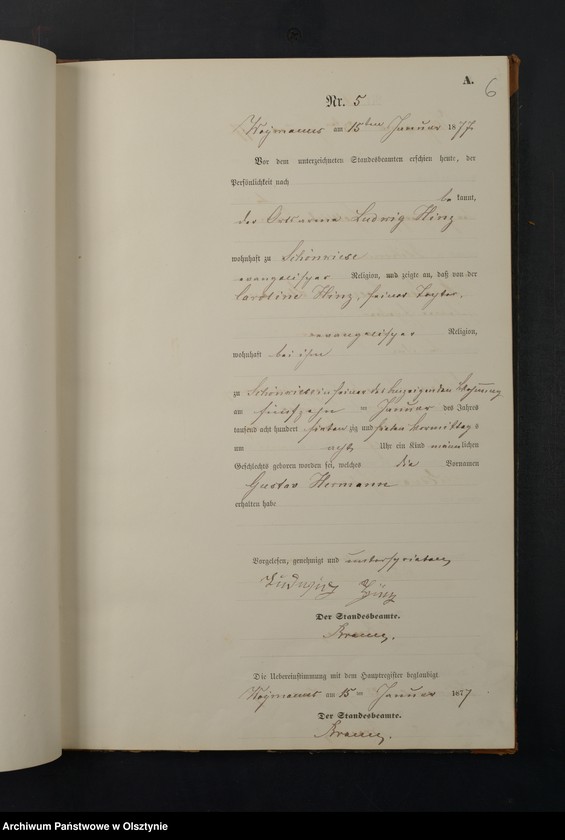 A.
6
Nr. 5
Woymanns am 15ten Januar 1877.
Vor dem unterzeichneten Standesbeamten erschien heute, der
Persönlichkeit nach
bekannt,
der Ortsarme Ludwig Hinz
wohnhaft zu Schönwiese
evangelischer Religion, und zeigte an, daß von der
Caroline Hinz, seiner Tochter,
evangelischer Religion,
wohnhaft bei ihm
zu Schönwiese in seiner des Anzeigenden Wohnung
am fünfzehn ten Januar des Jahres
tausend acht hundert siebenzig und sieben Vormittags
um acht Uhr ein Kind männlichen
Geschlechts geboren worden sei, welches die Vornamen
Gustav Hermann
erhalten habe
Vorgelesen, genehmigt und unterschrieben
Ludwig Hinz
Der Standesbeamte.
Die Uebereinstimmung mit dem Hauptregister beglaubigt
Woymanns am 15 ten Januar 1877
Der Standesbeamte.
Archiwum Państwowe w Olsztynie